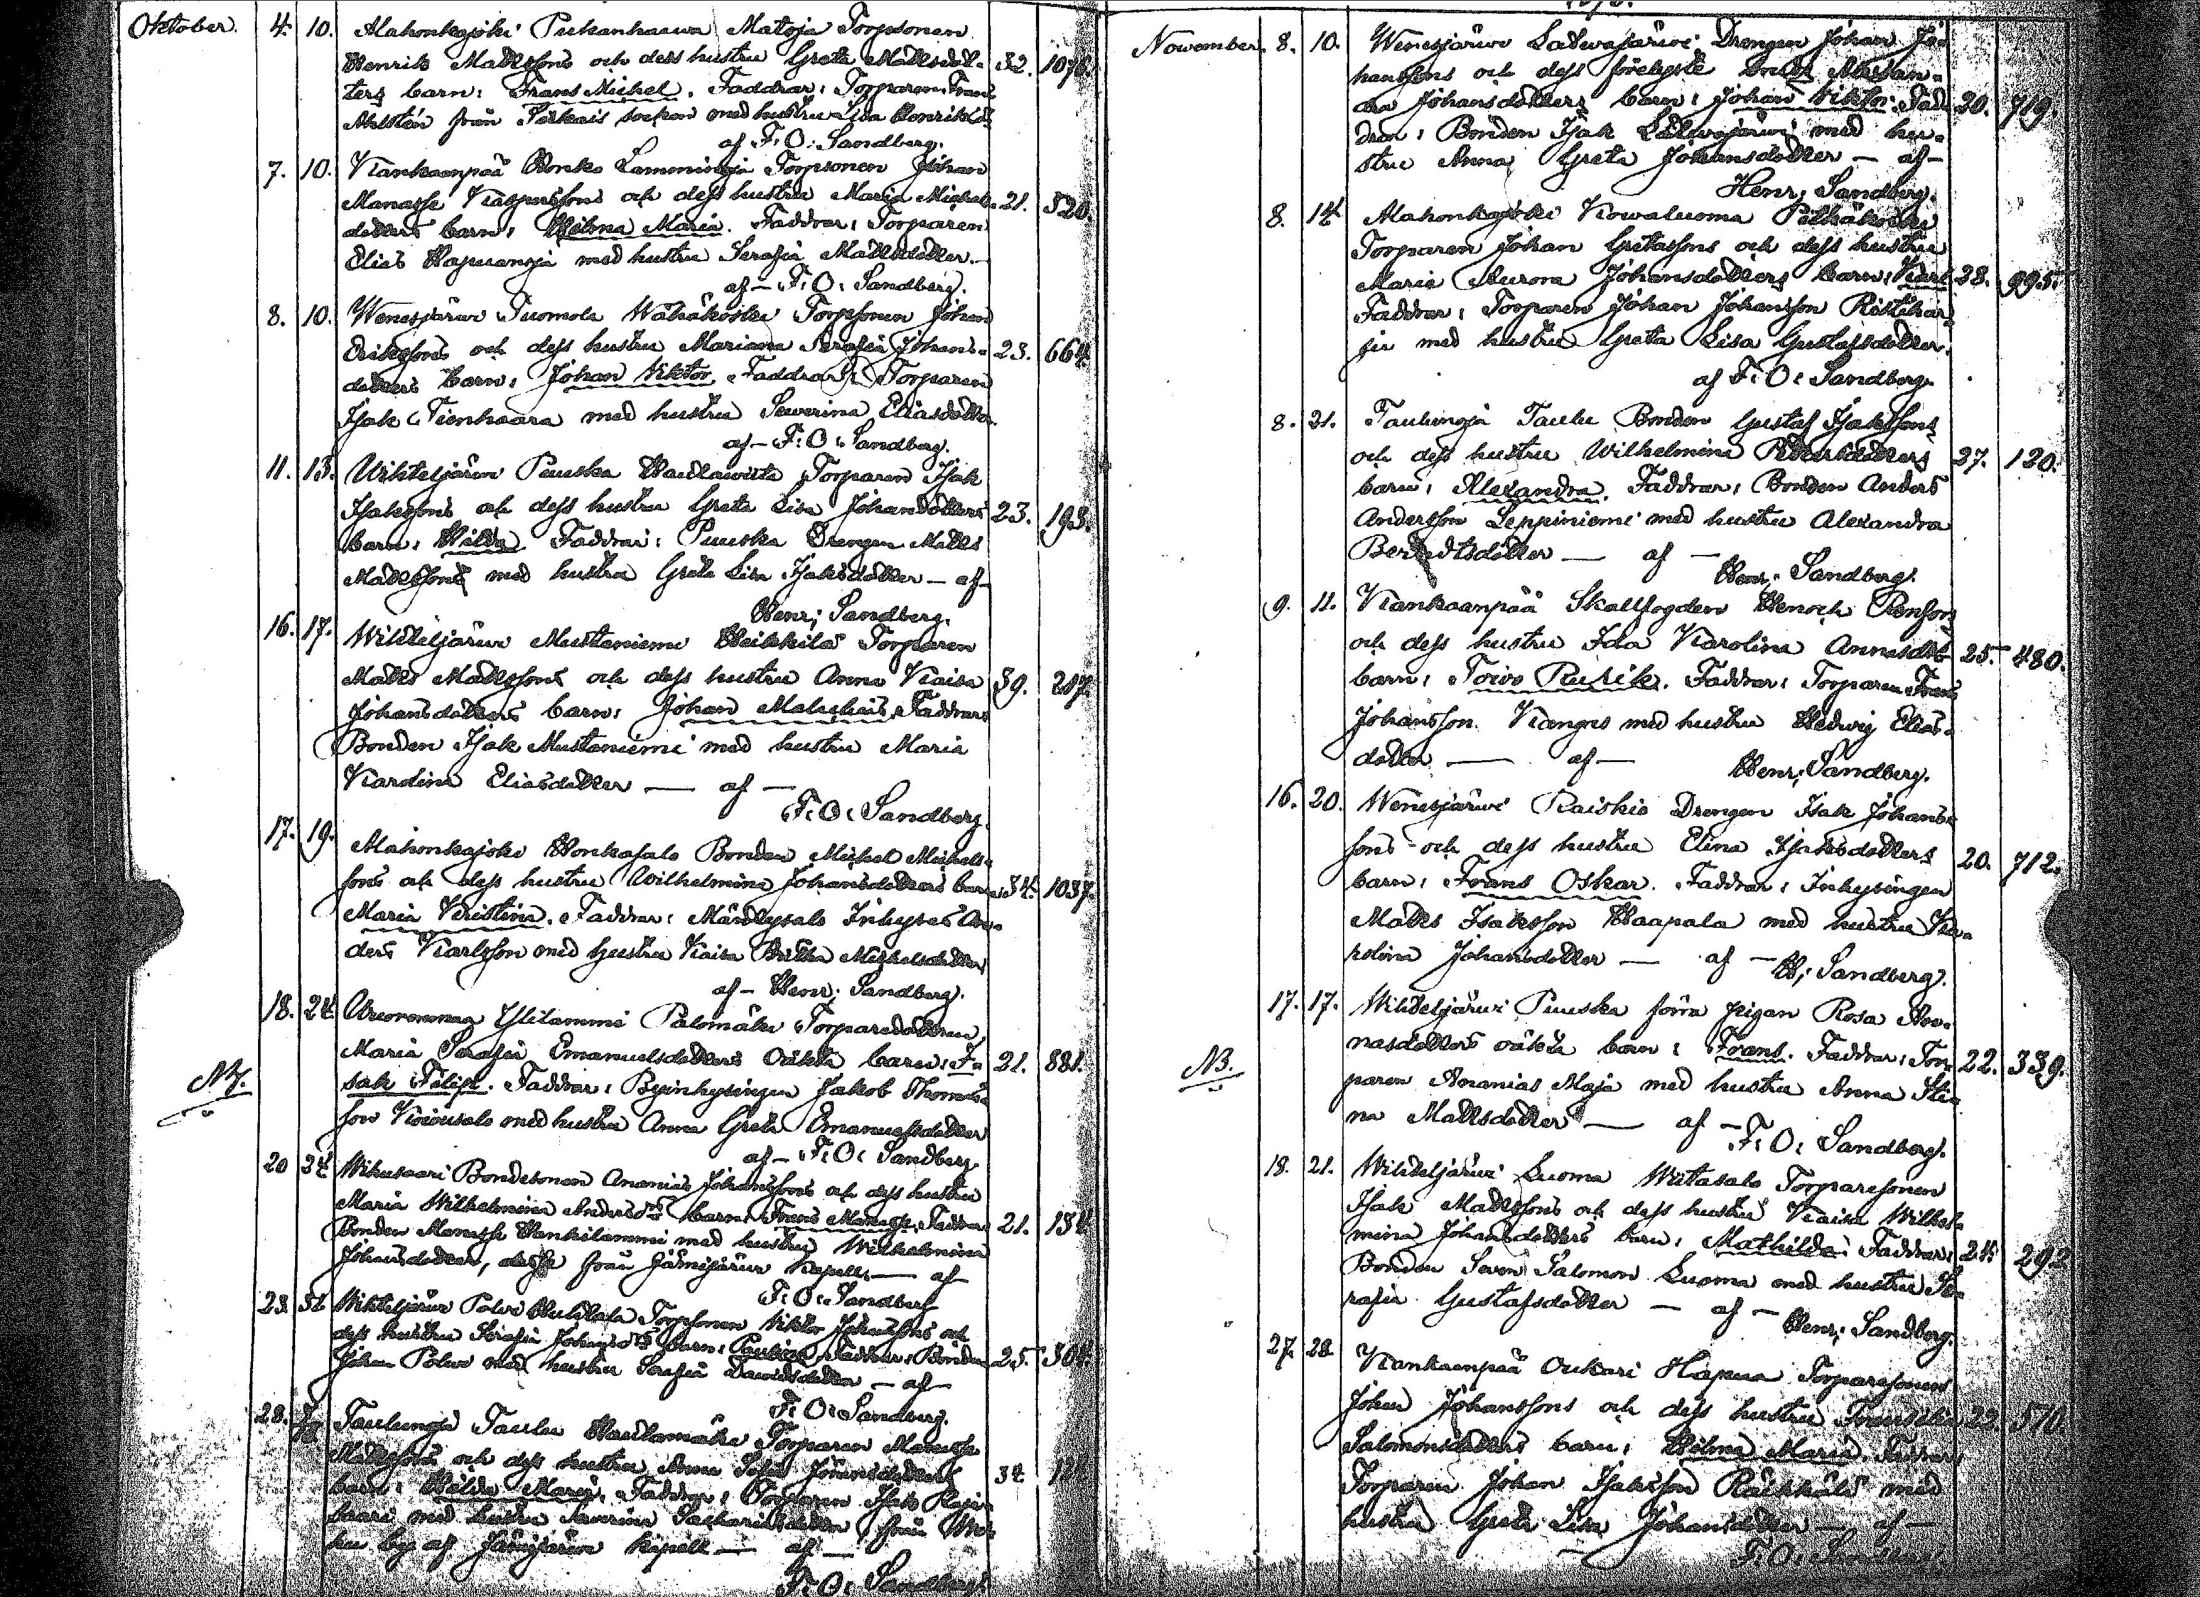 Oktober. 4. 10. Alahonkajoki Pukanhaawa Matoja Torpsonen
Henrik Mattssons och dess hustru Greta Mattsdot- 32. 1076.
ters barn: Frans Michel. Faddrar: Torparen Frans
Ahlstén från socken med hustru Lisa Henriksd.
af F. O. Sandberg.
7. 10. Kankaanpää Honko Lamminoja Torpsonen Johan
Manasse Kaspurssons och dess hustru Maria Michels- 21. 520.
dotters barn: Hilma Maria. Faddrar: Torparen
Elias Hapuanoja med hustru Serafia Mattsdotter.
af – F. O. Sandberg.
8. 10. Wenesjärwi Tuomola Wähäkoski Torpsonen Johan
Erikssons och dess hustru Mariana Serafia Johans- 23. 664.
dotters barn: Johan Viktor. Faddrar: Torparen
Isak Tienhaara med hustru Severina Eliasdotter
af – F. O. Sandberg.
11. 13. Wihteljärwi Puuska Torparen Isak
Isakssons och dess hustru Greta Lisa Johansdotters 23. 193.
barn: Hilda. Faddrar: Puuska Drengen Matts
Mattsson med hustru Greta Lisa Isaksdotter – af –
Henr. Sandberg.
16. 17. Wihteljärwi Mustaniemi Heikkilä Torparen
Matts Mattssons och dess hustru Anna Kaisa 39. 217.
Johansdotters barn: Johan Malakias. Faddrar:
Bonden Isak Mustaniemi med hustru Maria
Karolina Eliasdotter — af –
F. O. Sandberg.
17. 19. Alahonkajoki Honkasalo Bonden Michel Michels-
sons och dess hustru Wilhelmina Johansdotters barn 34. 1037.
Maria Kristina. Faddrar: Mäntysalo Inhyses An-
ders Karlsson med hustru Kaisa Britta Michelsdotter
af – Henr. Sandberg.
18. 24. Ylilammi Palomäki Torparedottren
Maria Serafia Emanuelsdotters oäkta barn: I- 21. 881.
NB. sak Filip. Faddrar: Byinhysingen Jakob Thomas-
son Koiwusalo med hustru Anna Greta Emanuelsdotter
af – F. O. Sandberg.
20 24 Wihusaari Bondesonen Ananias Johanssons och dess hustru
Maria Wilhelmina Andersdrs barn: Frans Manasse. Faddrar: 21. 134.
Bonden Manasse Hankilammi med hustru Wilhelmina
Johansdotter, desse från Jämijärwi Kapell — af
F. O. Sandberg
23. Wihteljärwi Polwi Torpsonen Viktor Johanssons och
dess hustru Serafia Johansdrs barn: Faddrar: Bonden 25. 304.
Johan Polwi med hustru Serafia Davidsdotter – af –
F. O. Sandberg.
28. Taulunoja Taulu Hautamäki Torparen Manasse
Mattssons och dess hustru Anna Sofia dotters 34
barn: Hilda Maria. Faddrar: Torparen Isak
med hustru Severina Sakariasdotter från
by af Jämijärwi Kapell — af —
F. O. Sandberg.
November. 8. 10. Wenesjärwi Ladwajärwi Drengen Johan Jo-
hanssons och dess förelagde Alexan-
dra Johansdotters barn: Johan Viktor. Fadd- 20. 719.
drar: Bonden Isak Ladwajärwi med hu-
stru Anna Greta Johansdotter – af –
Henr. Sandberg.
8. 14 Alahonkajoki Kowaluoma
Torparen Johan Gustafssons och dess hustru
Maria Aurora Johansdotters barn: Karl 28. 995.
Faddrar: Torparen Johan Johansson Ristihar-
ju med hustru Greta Lisa Gustafsdotter.
af F. O. Sandberg.
8. 21. Taulunoja Taulu Bonden Gustaf Isakssons
och dess hustru Wilhelmina 27. 120.
barn: Alexandra. Faddrar: Bonden Anders
Andersson Leppiniemi med hustru Alexandra
Berndtsdotter — af –
Henr. Sandberg.
9. 11. Kankaanpää Skallfogden Henoch
och dess hustru Ida Karolina Annasdtrs 25. 480.
barn: Toivo Rurik. Faddrar: Torparen Frans
Johansson Kangas med hustru Hedwig Elias-
dotter — af — Henr. Sandberg.
16. 20. Wenesjärwi Raiskio Drengen Isak Johans-
sons och dess hustru Elina Isaksdotters 20. 712.
barn: Frans Oskar. Faddrar: Inhysingen
Matts Isaksson Haapala med hustru Ka-
rolina Johansdotter — af – H. Sandberg.
17. 17. Wihteljärwi Puuska förra pigan Rosa An-
nasdotters oäkta barn: Frans. Faddrar: Tor- 22. 339.
NB. paren Ananias Maja med hustru Anna Sti-
na Mattsdotter — af – F. O. Sandberg.
18. 21. Wihteljärwi Luoma Wiitasalo Torparesonen
Isak Mattssons och dess hustru Kaisa Wilhel-
mina Johansdotters barn: Mathilda. Faddrar: 24 292
Bonden Sven Salomon Luoma med hustru Se-
rafia Gustafsdotter — af – Henr. Sandberg.
27. 28 Kankaanpää Oukari Hapua Torparesonens
Johan Johanssons och dess hustru 22. 570.
Salomonsdotters barn: Hilma Maria. Faddrar:
Torparen Johan Isaksson Räikkälä med
hustru Greta Lisa Johansdotter — af —
F. O. Sandberg.